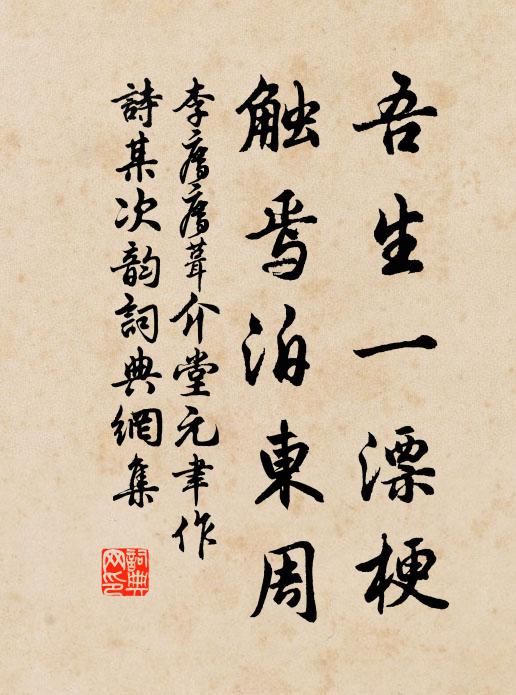 吾生一漂梗
触焉泊東周
李廌廌葺介堂元聿作
詩某次韵詞典網集
詞典網印